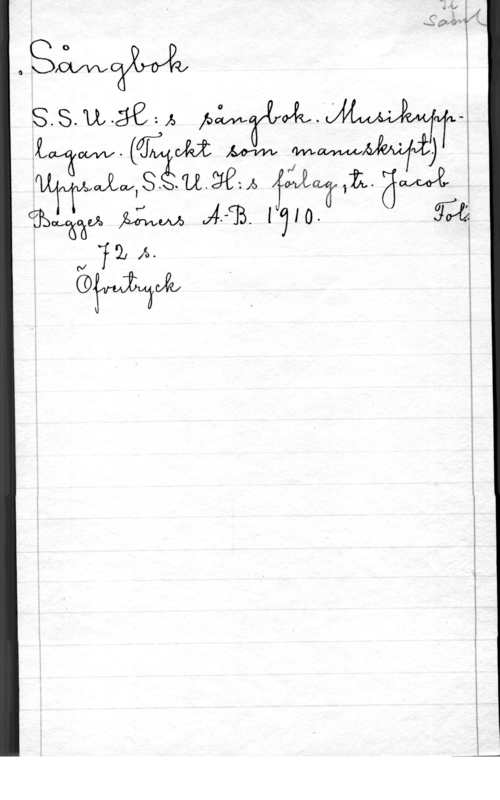 Saml
Sångbok
S.S.U.H.:s sångbok. Musikupp-
lagan. (Tryckt som manuskript.)
Uppsala, S.S.U.H.:s förlag, tr. Jacob
Bagges söners A.-B. 1910. Fol.
72 s.
Öfvertryck